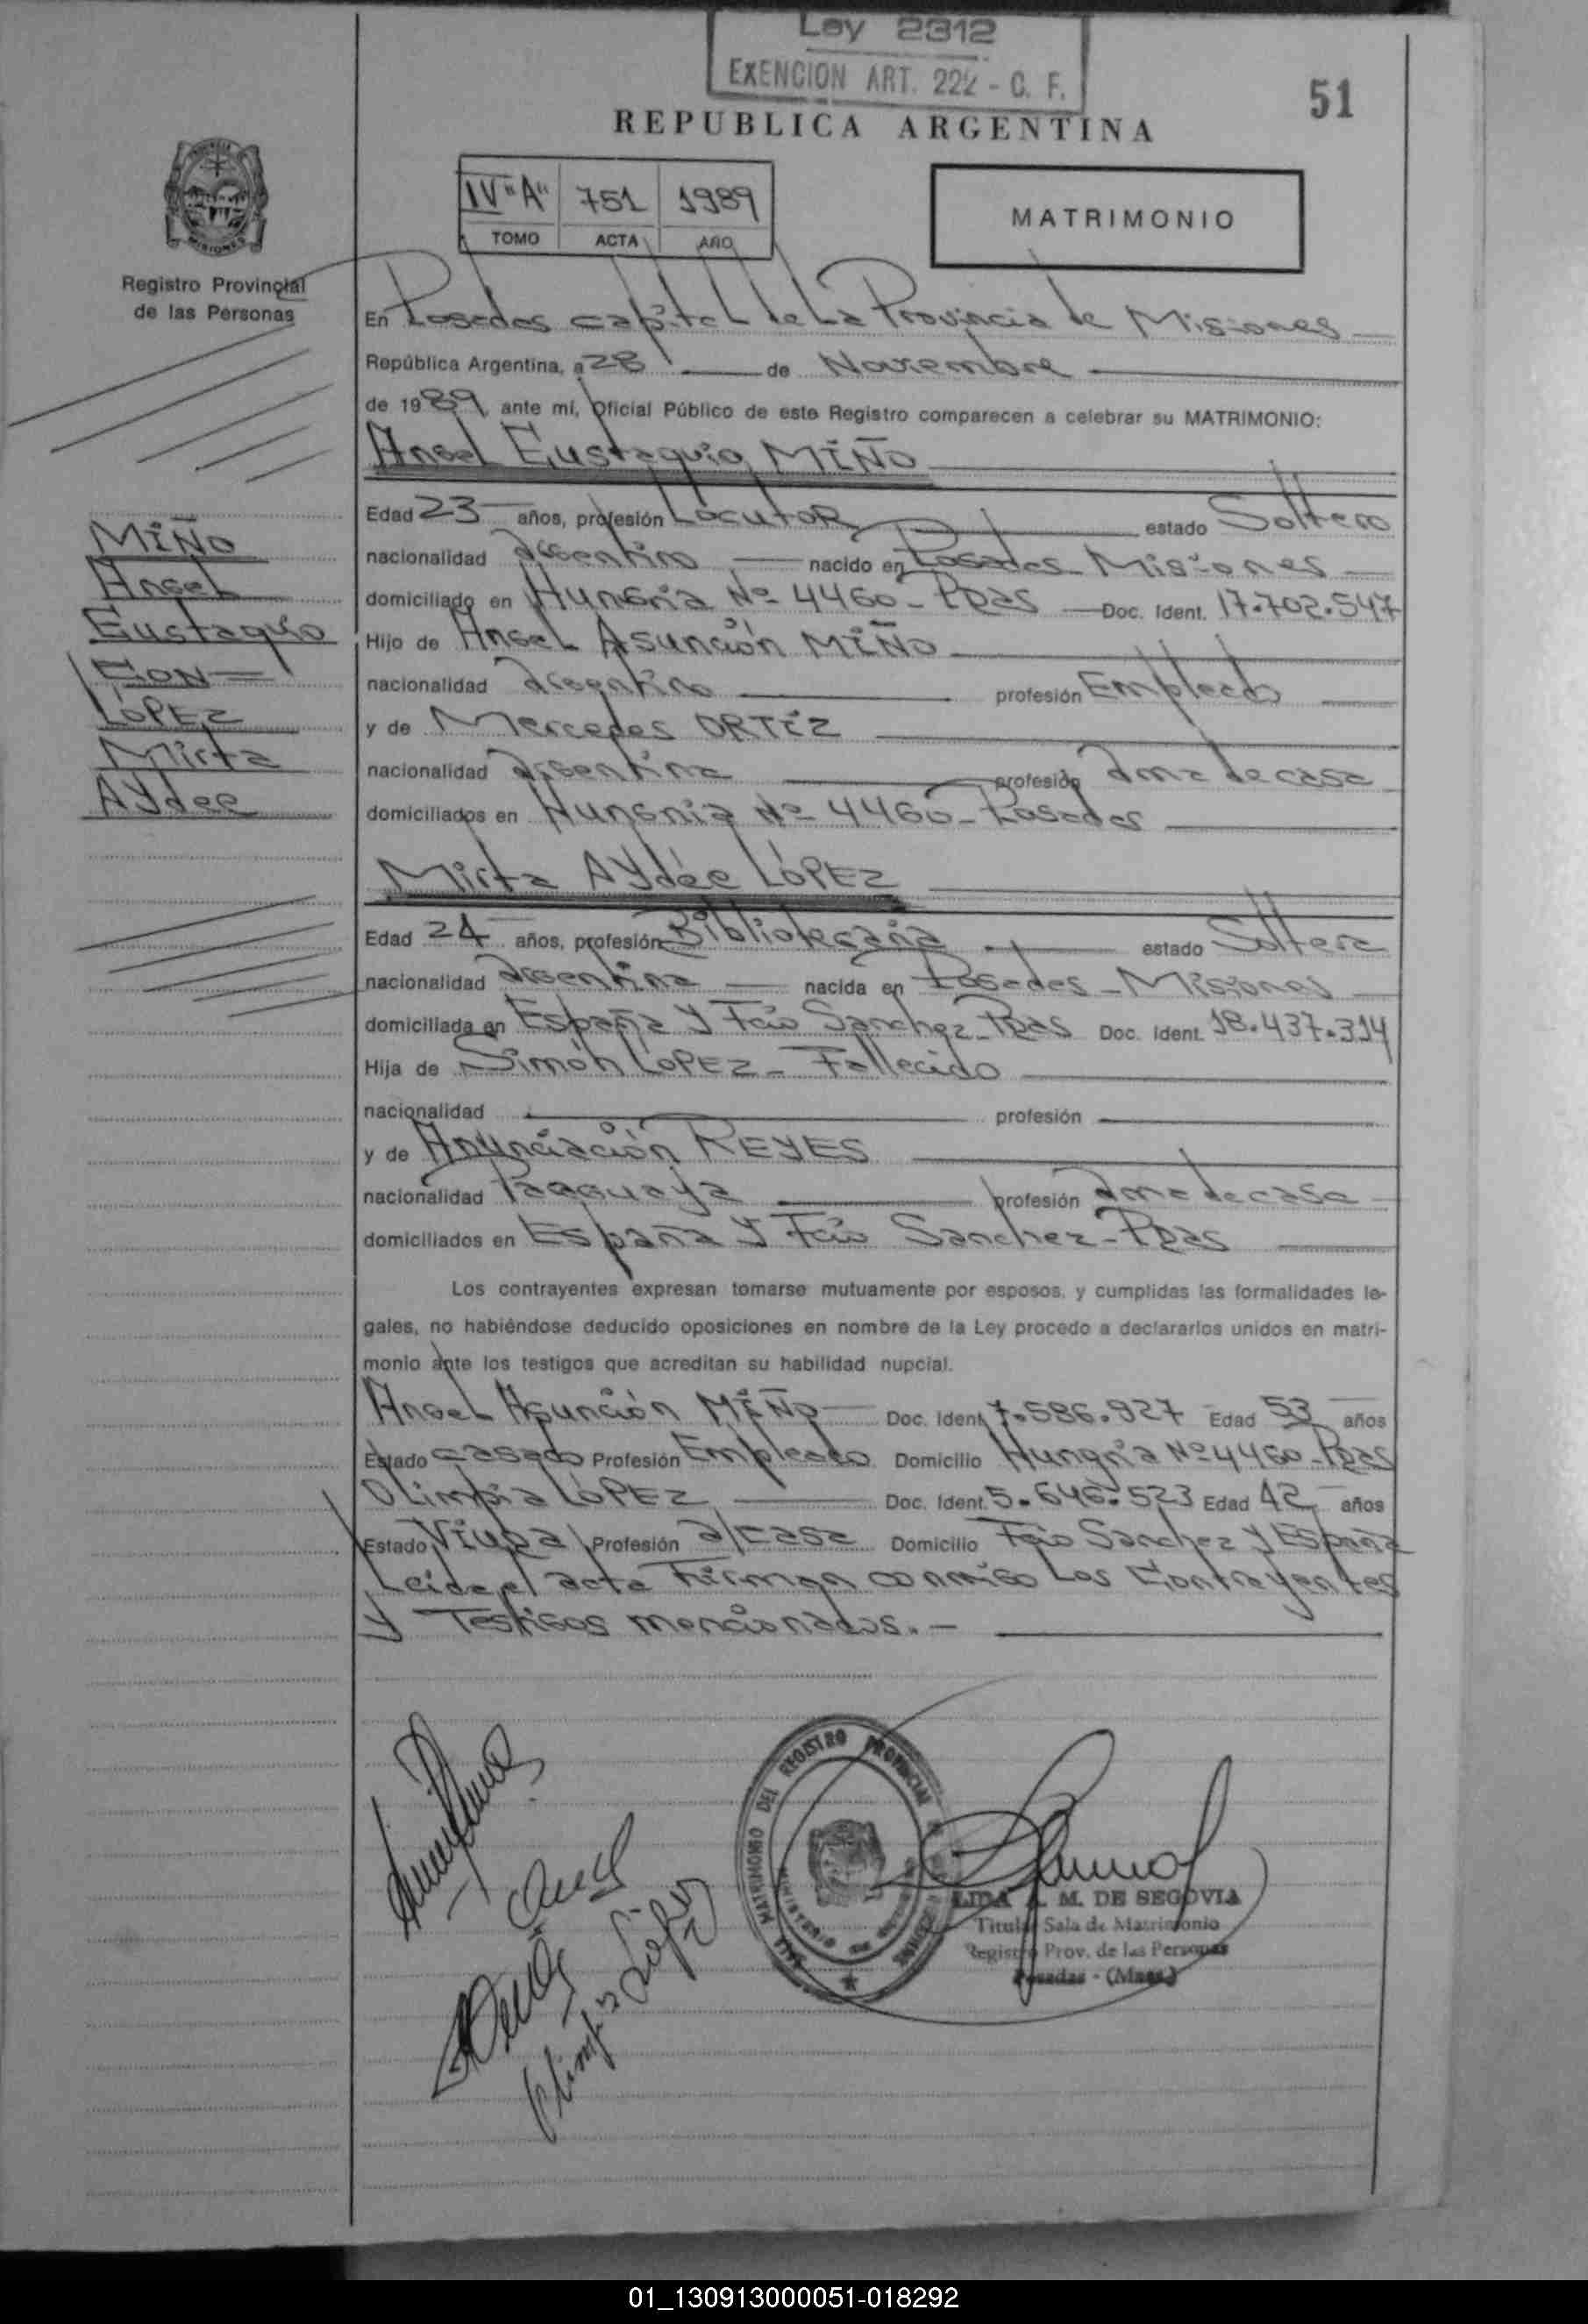 Ley 2312
EXENCION ART. 222 - C. F.
51
REPUBLICA ARGENTINA
IV "A" 751 1989
TOMO ACTA AÑO
MATRIMONIO
Registro Provincial
de las Personas
En Posadas capital de la Provincia de Misiones
República Argentina, a 28 de Noviembre
de 1989 ante mí, Oficial Público de este Registro comparecen a celebrar su MATRIMONIO:
Angel Eustaquio MIÑO
Edad 23 años, profesión Locutor estado Soltero
nacionalidad argentino nacido en Posadas Misiones
domiciliado en Hungria Nº 4460 - Pdas Doc. Ident. 17.702.547
Hijo de Angel Asunción MIÑO
nacionalidad argentino profesión Empleado
y de Mercedes ORTIZ
nacionalidad argentina profesión ama de casa
domiciliados en Hungria Nº 4460 - Posadas
MIÑO
Angel
Eustaquio
CON
LÓPEZ
Mirta
Aydee
Mirta Aydée LÓPEZ
Edad 24 años, profesión Bibliotecaria estado Soltera
nacionalidad argentina nacida en Posadas - Misiones
domiciliada en España y Fco Sanchez - Pdas Doc. Ident. 18.437.314
Hija de Simón LÓPEZ - Fallecido
nacionalidad profesión
y de Anunciación REYES
nacionalidad Paraguaya profesión ama de casa
domiciliados en España y Fco Sanchez - Pdas
Los contrayentes expresan tomarse mutuamente por esposos, y cumplidas las formalidades le-
gales, no habiéndose deducido oposiciones en nombre de la Ley procedo a declararlos unidos en matri-
monio ante los testigos que acreditan su habilidad nupcial.
Angel Asunción MIÑO Doc. Ident. 7.586.927 Edad 53 años
Estado casado Profesión Empleado Domicilio Hungria Nº 4460 - Pdas
Olimpia LÓPEZ Doc. Ident. 5.646.523 Edad 42 años
Estado Viuda Profesión a/casa Domicilio Fco Sanchez y España
Leida el acta Firman conmigo Los Contrayentes
y Testigos mencionados. -
SALA MATRIMONIO DEL REGISTRO PROVINCIAL
MINISTERIO DE
Olimpia López
LIDA A. M. DE SEGOVIA
Titular Sala de Matrimonio
Registro Prov. de las Personas
Posadas - (Mnes.)
01_130913000051-018292